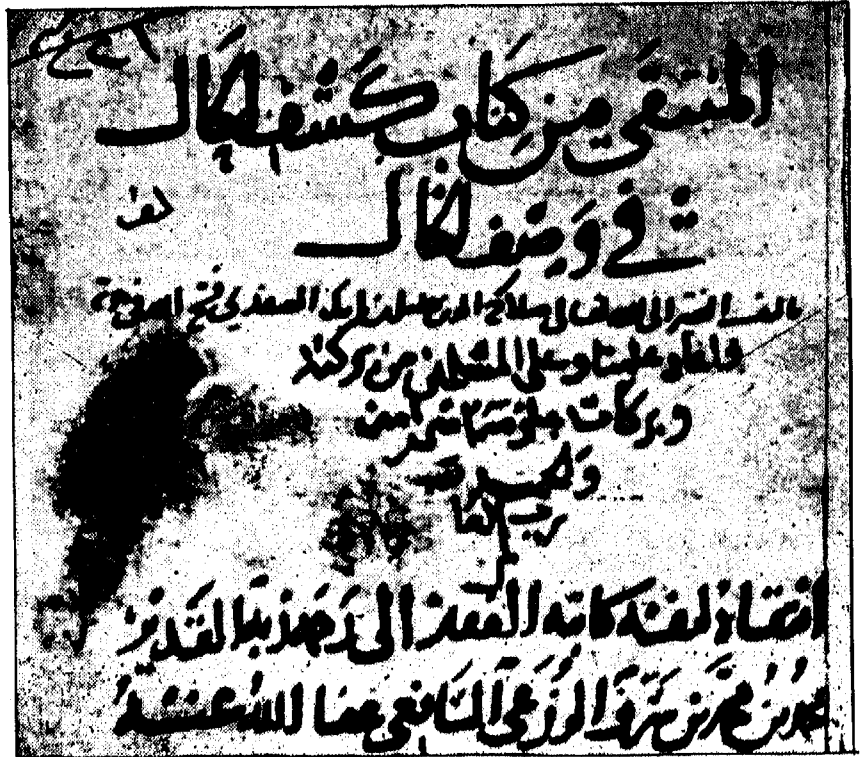 المنتقى من كتاب كشف الحال
في وصف الخال
تأليف الفقير الى الله تعالى صلاح الدين خليل بن ايبك الصفدي فسح الله في مدته
واعاد علينا وعلى المسلمين من بركته
وبركات علومه امين
والحمد لله
رب العا
لمين
انتقاه لنفسه كاتبه الفقير الى رحمة ربه القدير
محمد بن محمد بن الزرعي الشافعي عفا الله عنه